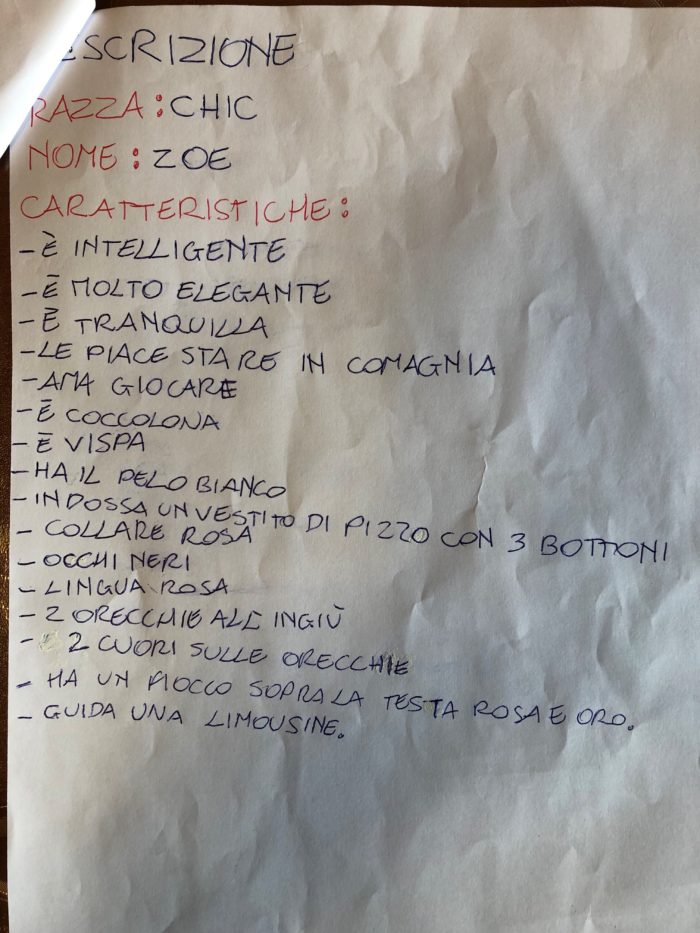 ESCRIZIONE
RAZZA: CHIC
NOME: ZOE
CARATTERISTICHE:
- È INTELLIGENTE
- È MOLTO ELEGANTE
- È TRANQUILLA
- LE PIACE STARE IN COMAGNIA
- AMA GIOCARE
- È COCCOLONA
- È VISPA
- HA IL PELO BIANCO
- INDOSSA UN VESTITO DI PIZZO CON 3 BOTTONI
- COLLARE ROSA
- OCCHI NERI
- LINGUA ROSA
- 2 ORECCHIE ALL'INGIÙ
- 2 CUORI SULLE ORECCHIE
- HA UN FIOCCO SOPRA LA TESTA ROSA E ORO.
- GUIDA UNA LIMOUSINE.